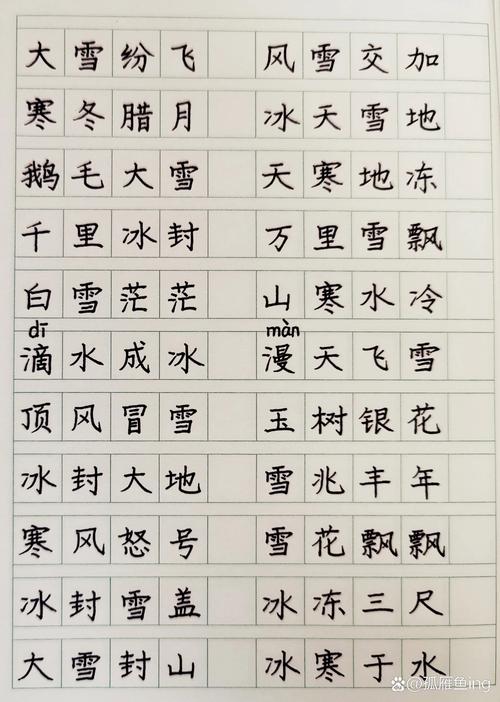 大雪纷飞 风雪交加
寒冬腊月 冰天雪地
鹅毛大雪 天寒地冻
千里冰封 万里雪飘
白雪茫茫 山寒水冷
dī màn
滴水成冰 漫天飞雪
顶风冒雪 玉树银花
冰封大地 雪兆丰年
寒风怒号 雪花飘飘
冰封雪盖 冰冻三尺
大雪封山 冰寒于水
@孤雁鱼ing